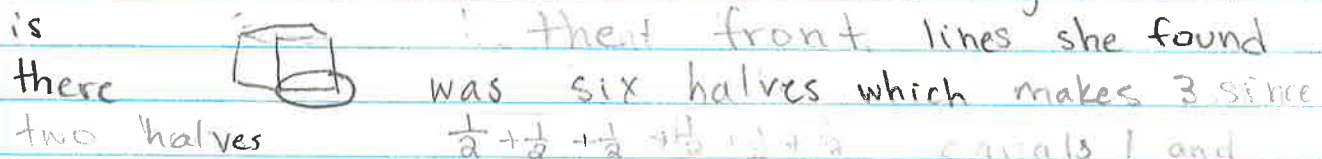 is front lines she found
there was six halves which makes 3 since
two halves 1/2 + 1/2 + 1/2 + 1/2 + 1/2 + 1/2 equals 1 and